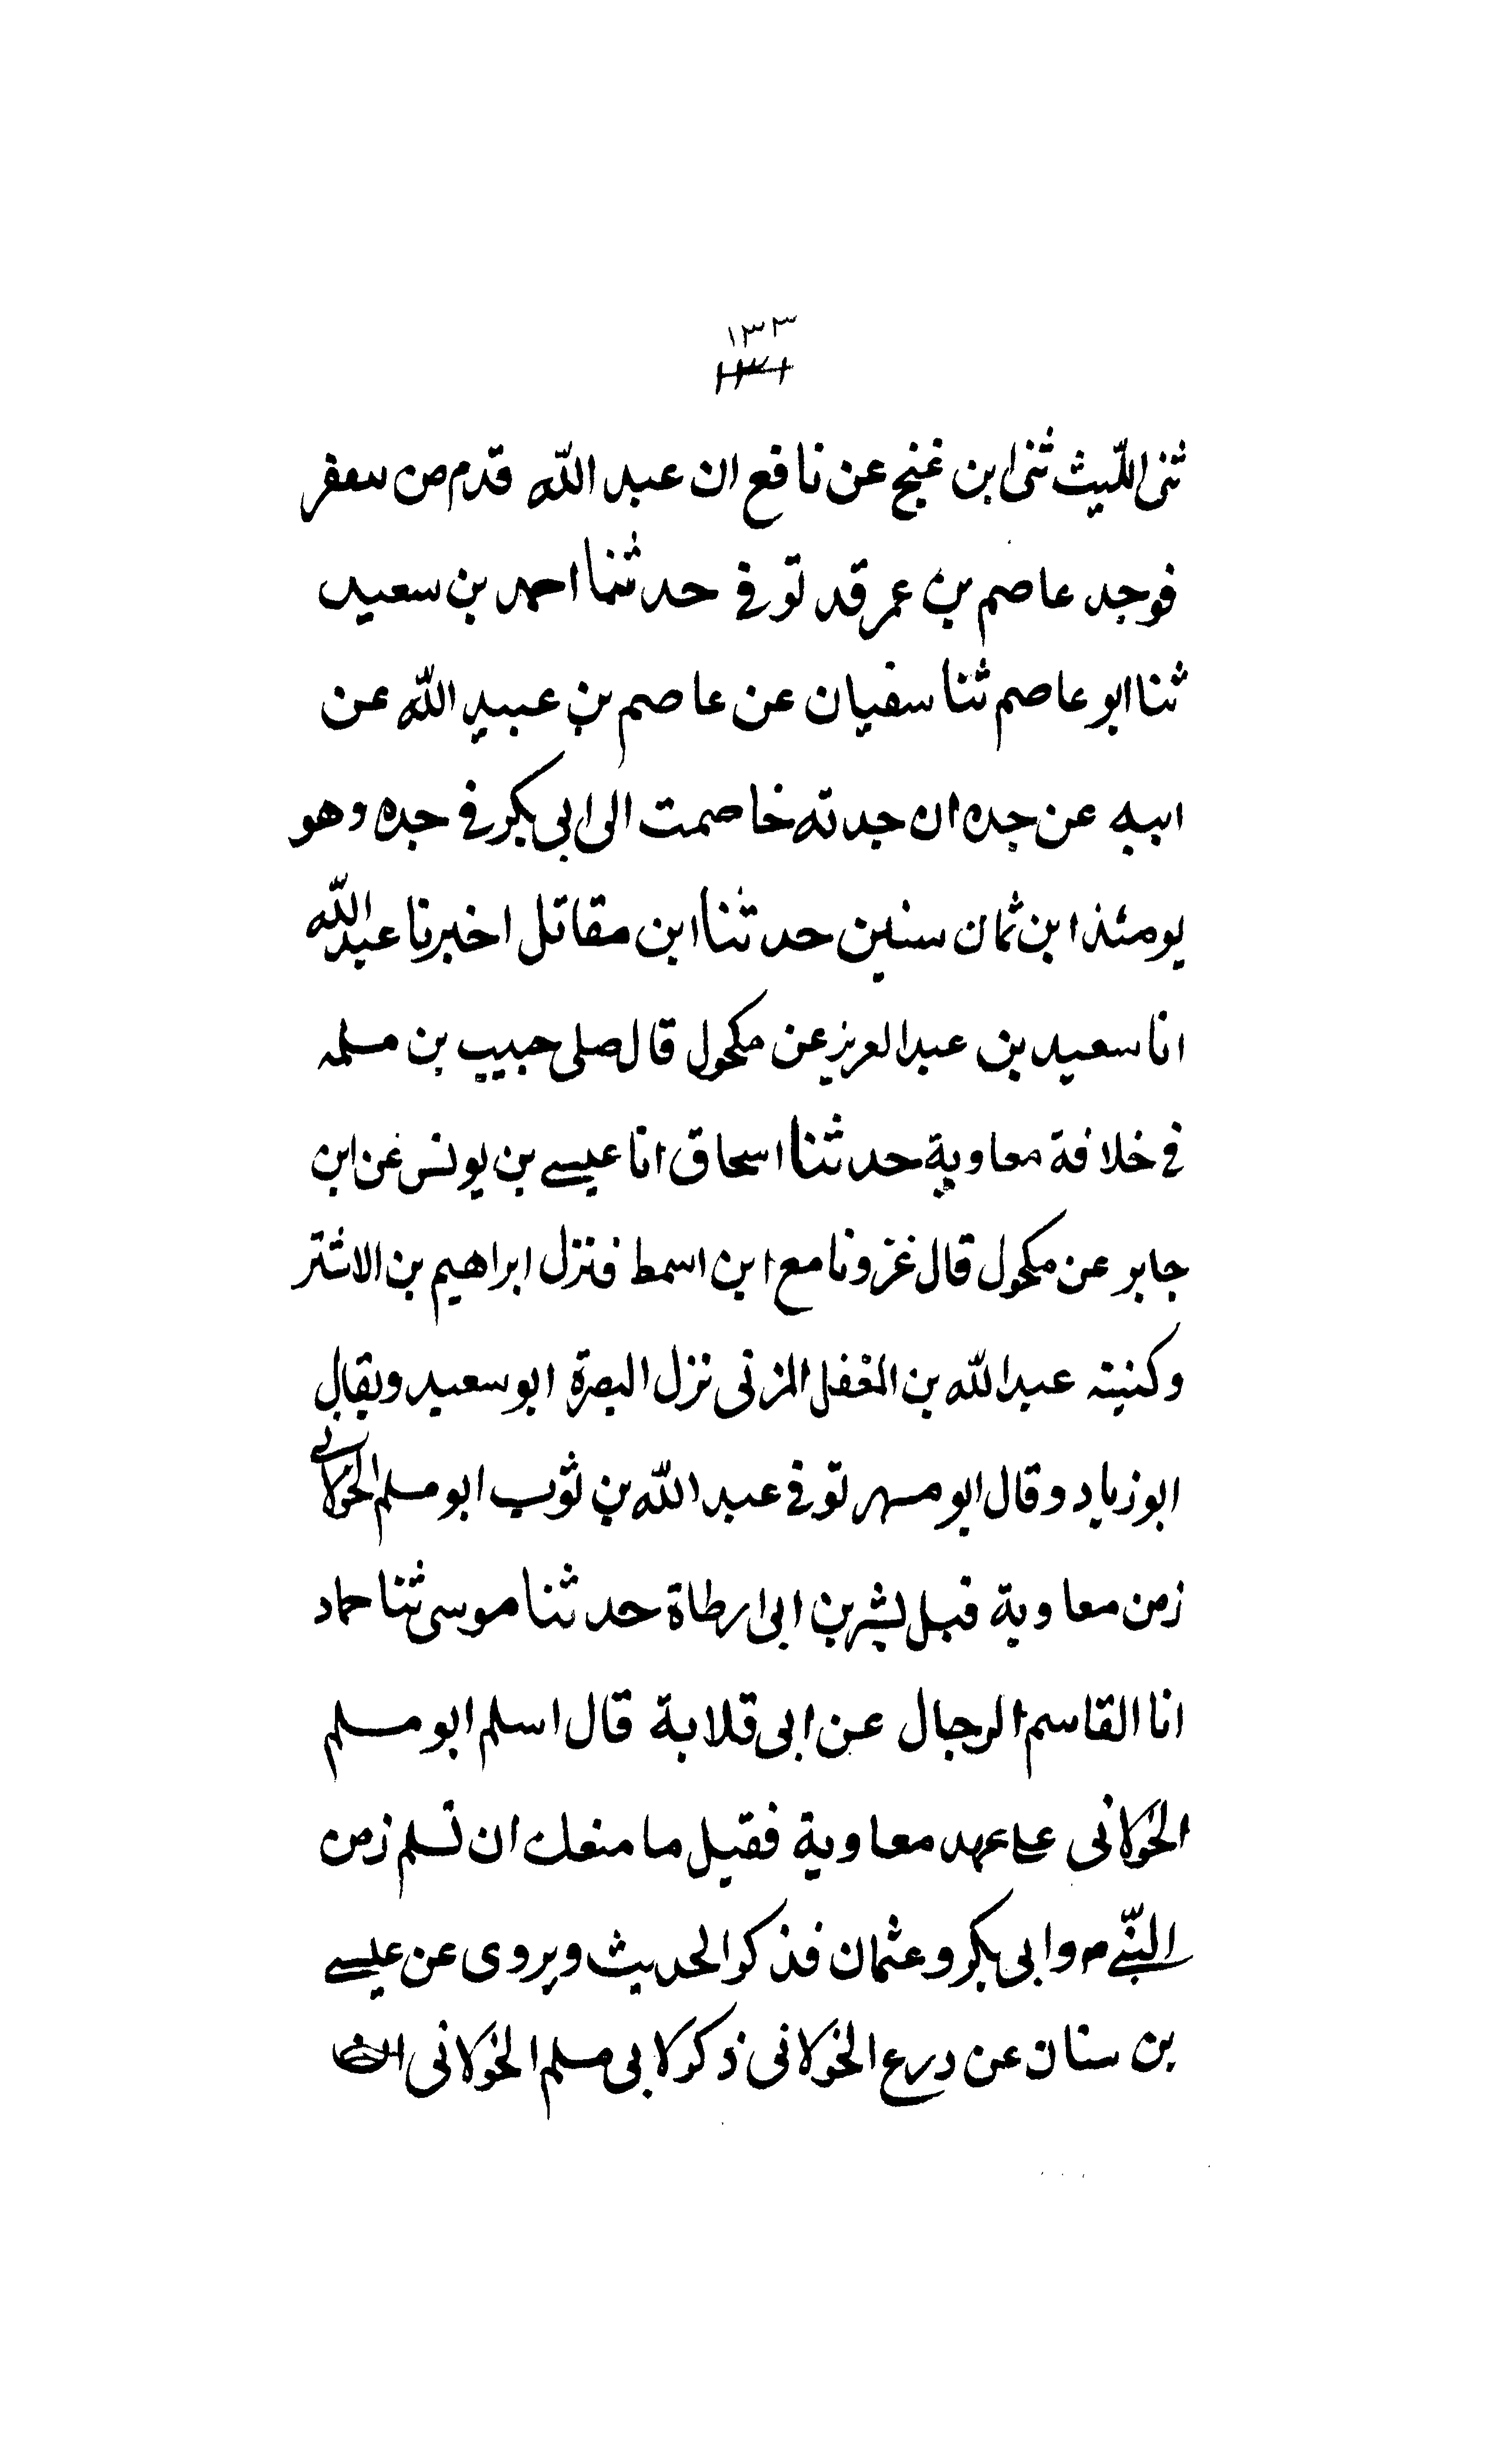 ١٣٣
ثنى الليث ثنى ابن غنج عن نافع ان عبد الله قدم من سفر
فوجد عاصم بن عمر قد توفي حدثنا احمد بن سعيد
ثنا ابو عاصم ثنا سفيان عن عاصم بن عبيد الله عن
ابيه عن جده ان جدته خاصمت الى ابي بكر في جده وهو
يومئذ ابن ثمان سنين حدثنا ابن مقاتل اخبرنا عبد الله
انا سعيد بن عبد العزيز عن مكحول قال صلى حبيب بن مسلمه
في خلافة معاوية حدثنا اسحاق انا عيسے بن يونس عن ابن
جابر عن مكحول قال غزونا مع ابن اسمط فنزل ابراهيم بن الاشتر
وكنيته عبد الله بن المغفل المزنى نزل البصرة ابو سعيد ويقال
ابو زياد وقال ابو مسهر توفي عبد الله بن ثوب ابو مسلم الخولانى
زمن معاوية قبل بشر بن ابى ارطاة حدثنا موسى ثنا حماد
انا القاسم الرجال عن ابى قلابة قال اسلم ابو مسلم
الخولانى على عهد معاوية فقيل ما منعك ان تسلم زمن
النبے م وابى بكر وعثمان فذكر الحديث ويروى عن عيسے
بن سنان عن درع الخولانى ذكر لابى مسلم الخولانى